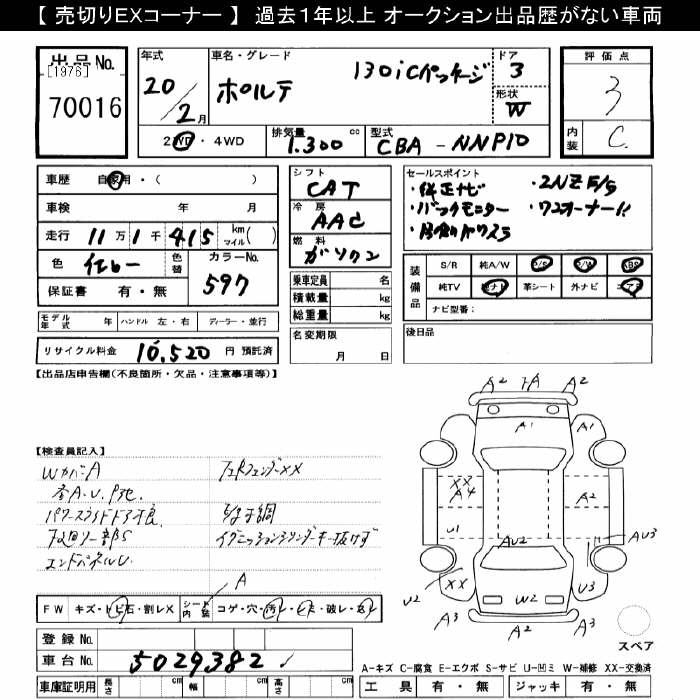 【 売切りEXコーナー 】 過去1年以上 オークション出品歴がない車両
出品No.
[1976]
70016
年式
20/2月
車名・グレード
ポルテ 130iCパッケージ
ドア
3
形状
W
評価点
3
内装
C
2WD・4WD
排気量 1.300 cc
型式 CBA-NNP10
車歴 自家用・( )
車検 年 月
走行 11万1千415 km マイル( )
色
色替
カラーNo.
597
保証書 有・無
シフト
CAT
冷房
AAC
燃料
ガソリン
乗車定員 名
積載量 kg
総重量 kg
名変期限
月 日
セールスポイント
・純正ナビ ・2NZ E/G
・バックモニター ・ワンオーナー!!
装備品
S/R 純A/W P/S P/W ABS
純TV 純ナビ 革シート 外ナビ エアB
ナビ型番:
後日品
モデル年式 年 ハンドル 左・右 ディーラー・並行
リサイクル料金 10,520 円 預託済
【出品店申告欄(不良箇所・欠品・注意事項等)】
【検査員記入】
WカバーA
各A.U.
パワースライドドア不良
エンドパネルU
フェンダーXX
イグニッションシリンダーキー抜けず
A
FW キズ・トビ石・割レX
シート内装 コゲ・穴・汚レ・
登録No.
車台No. 5029382
車庫証明用 長さ cm 幅 cm 高さ cm
A2 A A2
A1 A1
XX A4 A2
U1 AU2 AU3
XX W2 U3
U2 A3 A2 A3
スペア
A-キズ C-腐食 E-エクボ S-サビ U-凹ミ W-補修 XX-交換済
工具 有・無 ジャッキ 有・無